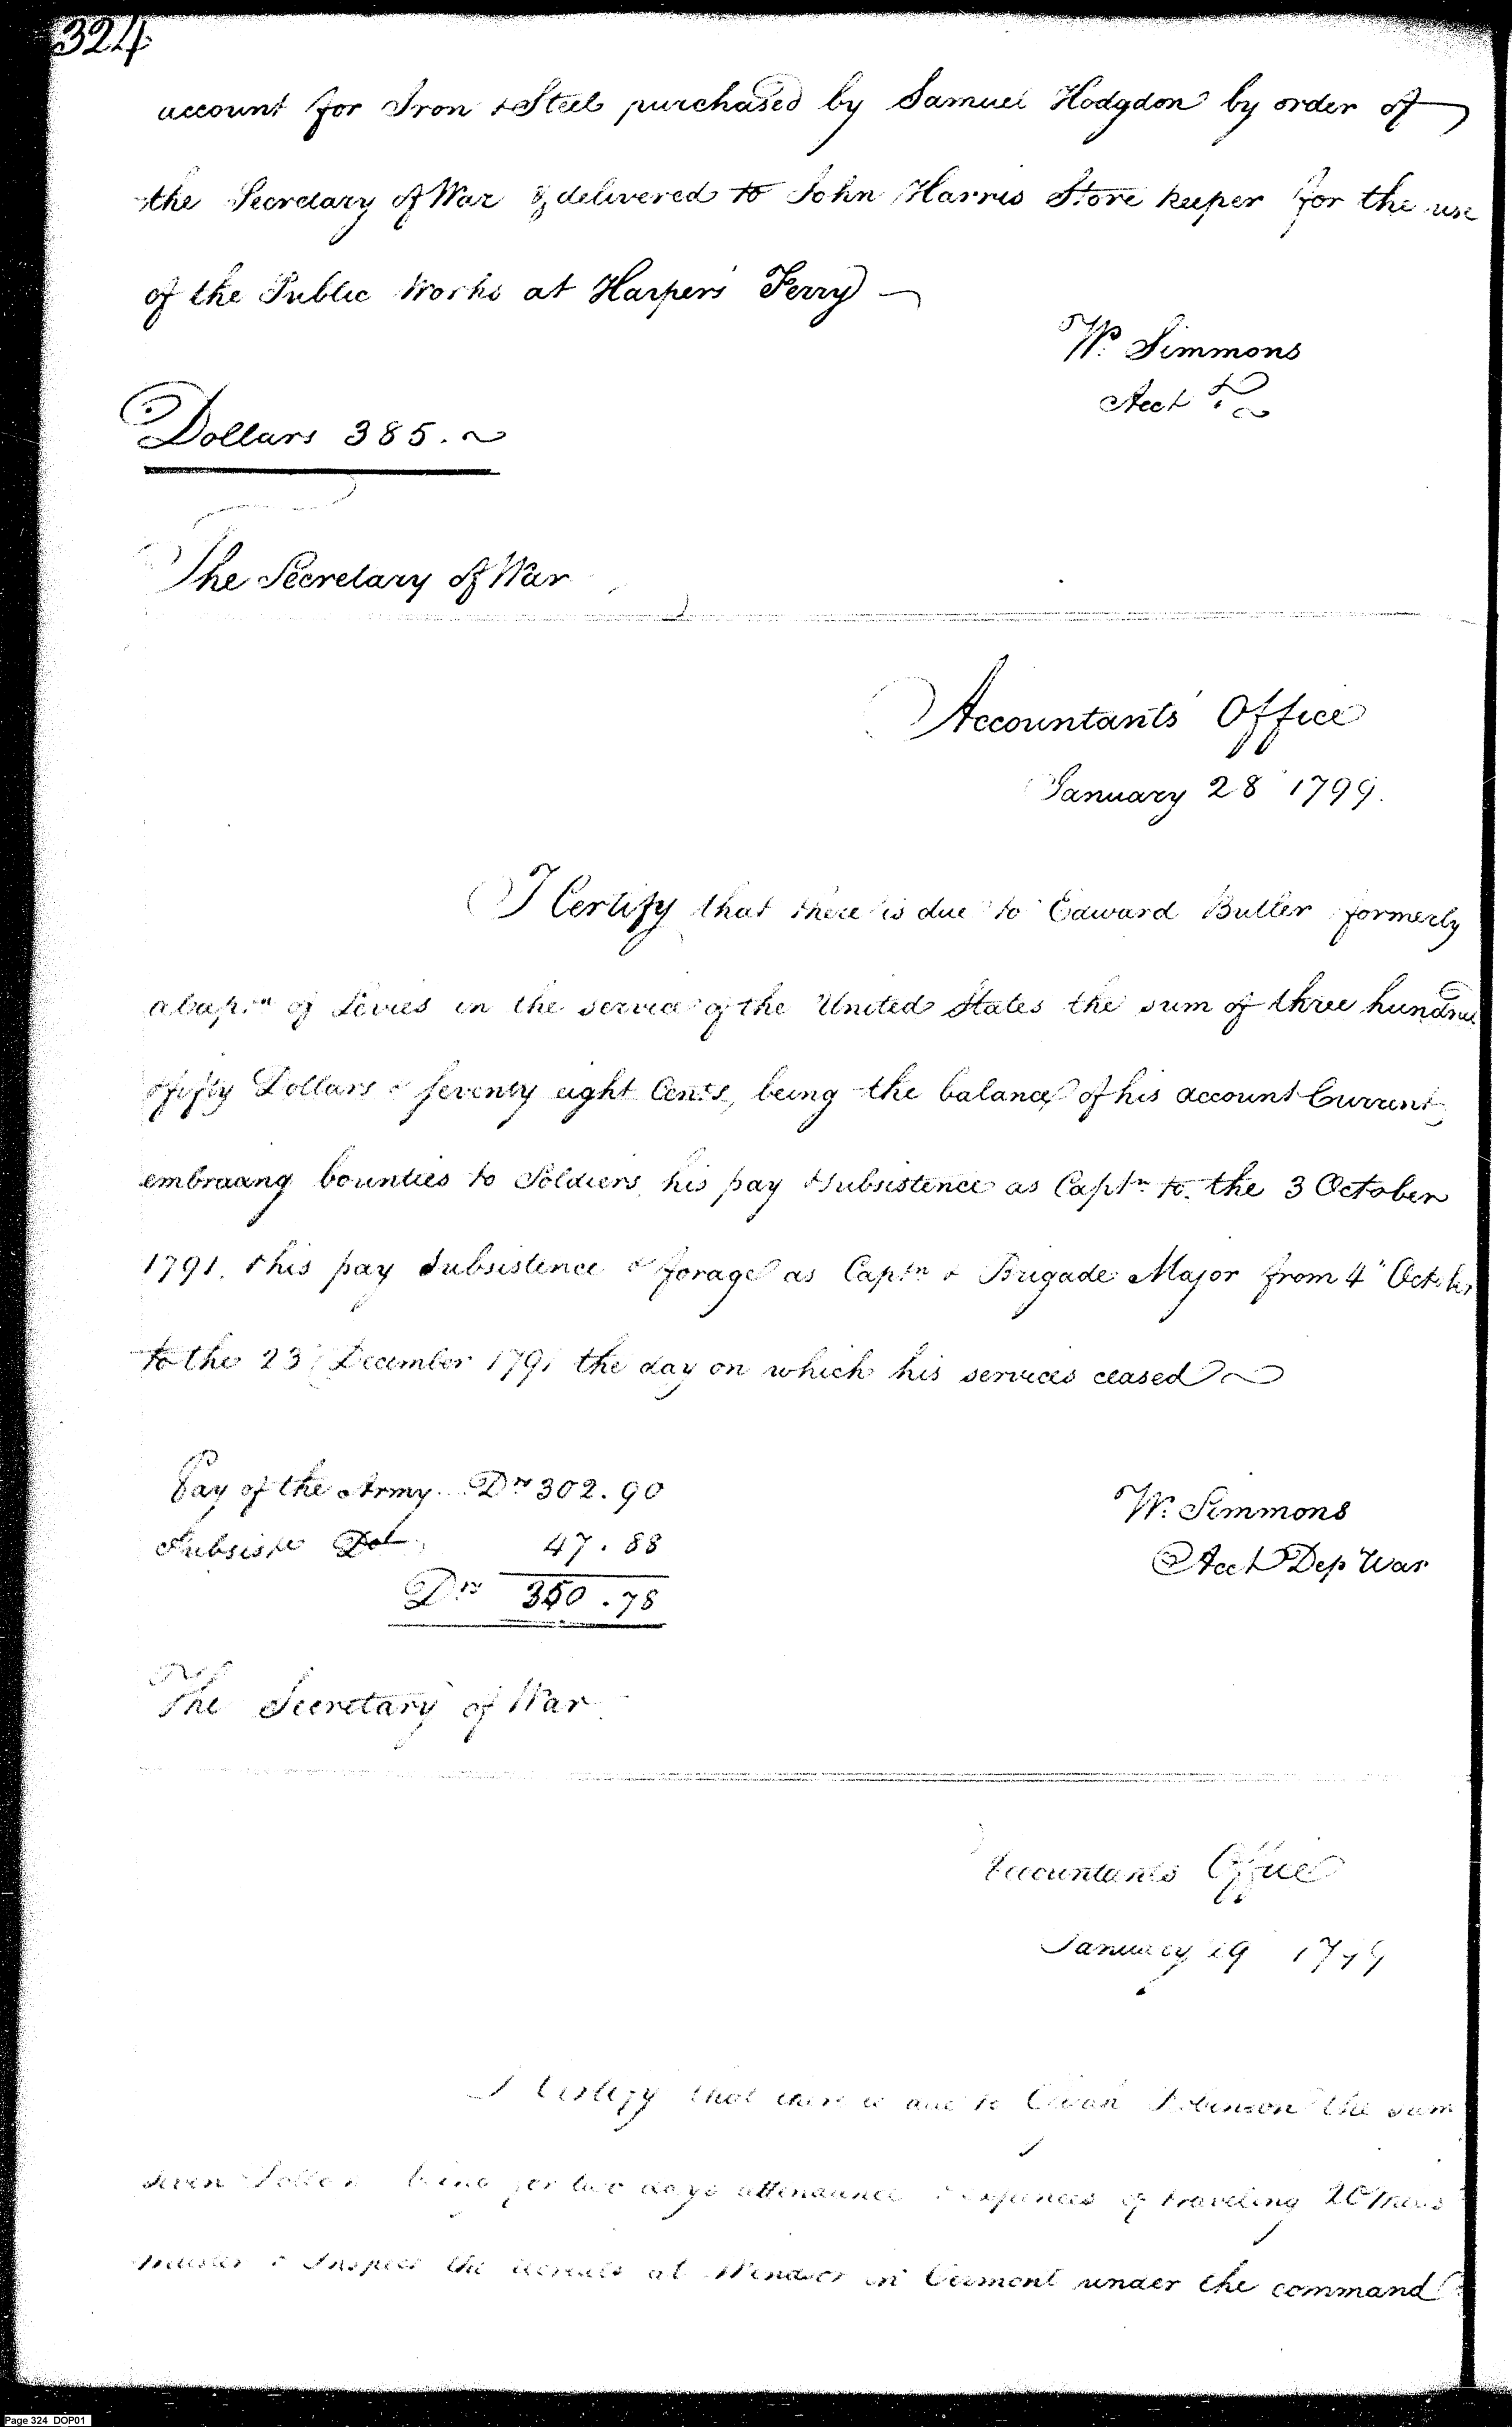 324
account for Iron & Steel purchased by Samuel Hodgdon by order of
the Secretary of War & delivered to John Harris Store keeper for the use
of the Public Works at Harpers Ferry
W. Simmons
Acct
Dollars 385.
The Secretary of War
Accountants Office
January 28 1799.
I Certify that there is due to Edward Butler formerly
a Captn of Levies in the service of the United States the sum of three hundred
& fifty Dollars & seventy eight Cents, being the balance of his account Current
embracing bounties to Soldiers, his pay & subsistence as Captn to the 3 October
1791. & his pay subsistence & forage as Captn & Brigade Major from 4" October
to the 23 December 1791 the day on which his services ceased
Pay of the Army Drs 302.90
W. Simmons
Subsist 47.88
Acct Dep War
Drs 350.78
The Secretary of War
Accountants Office
January 29 1799
I Certify that there is due to Robinson the sum
seven being for two days attendance & expences of traveling 20 miles
muster & Inspect the recruits at Windsor in Vermont under the command
Page 324 DOP01